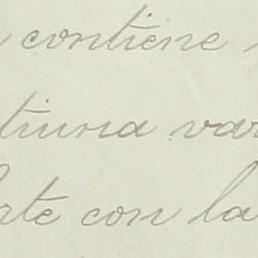 contiene
tiuna var
rte con la